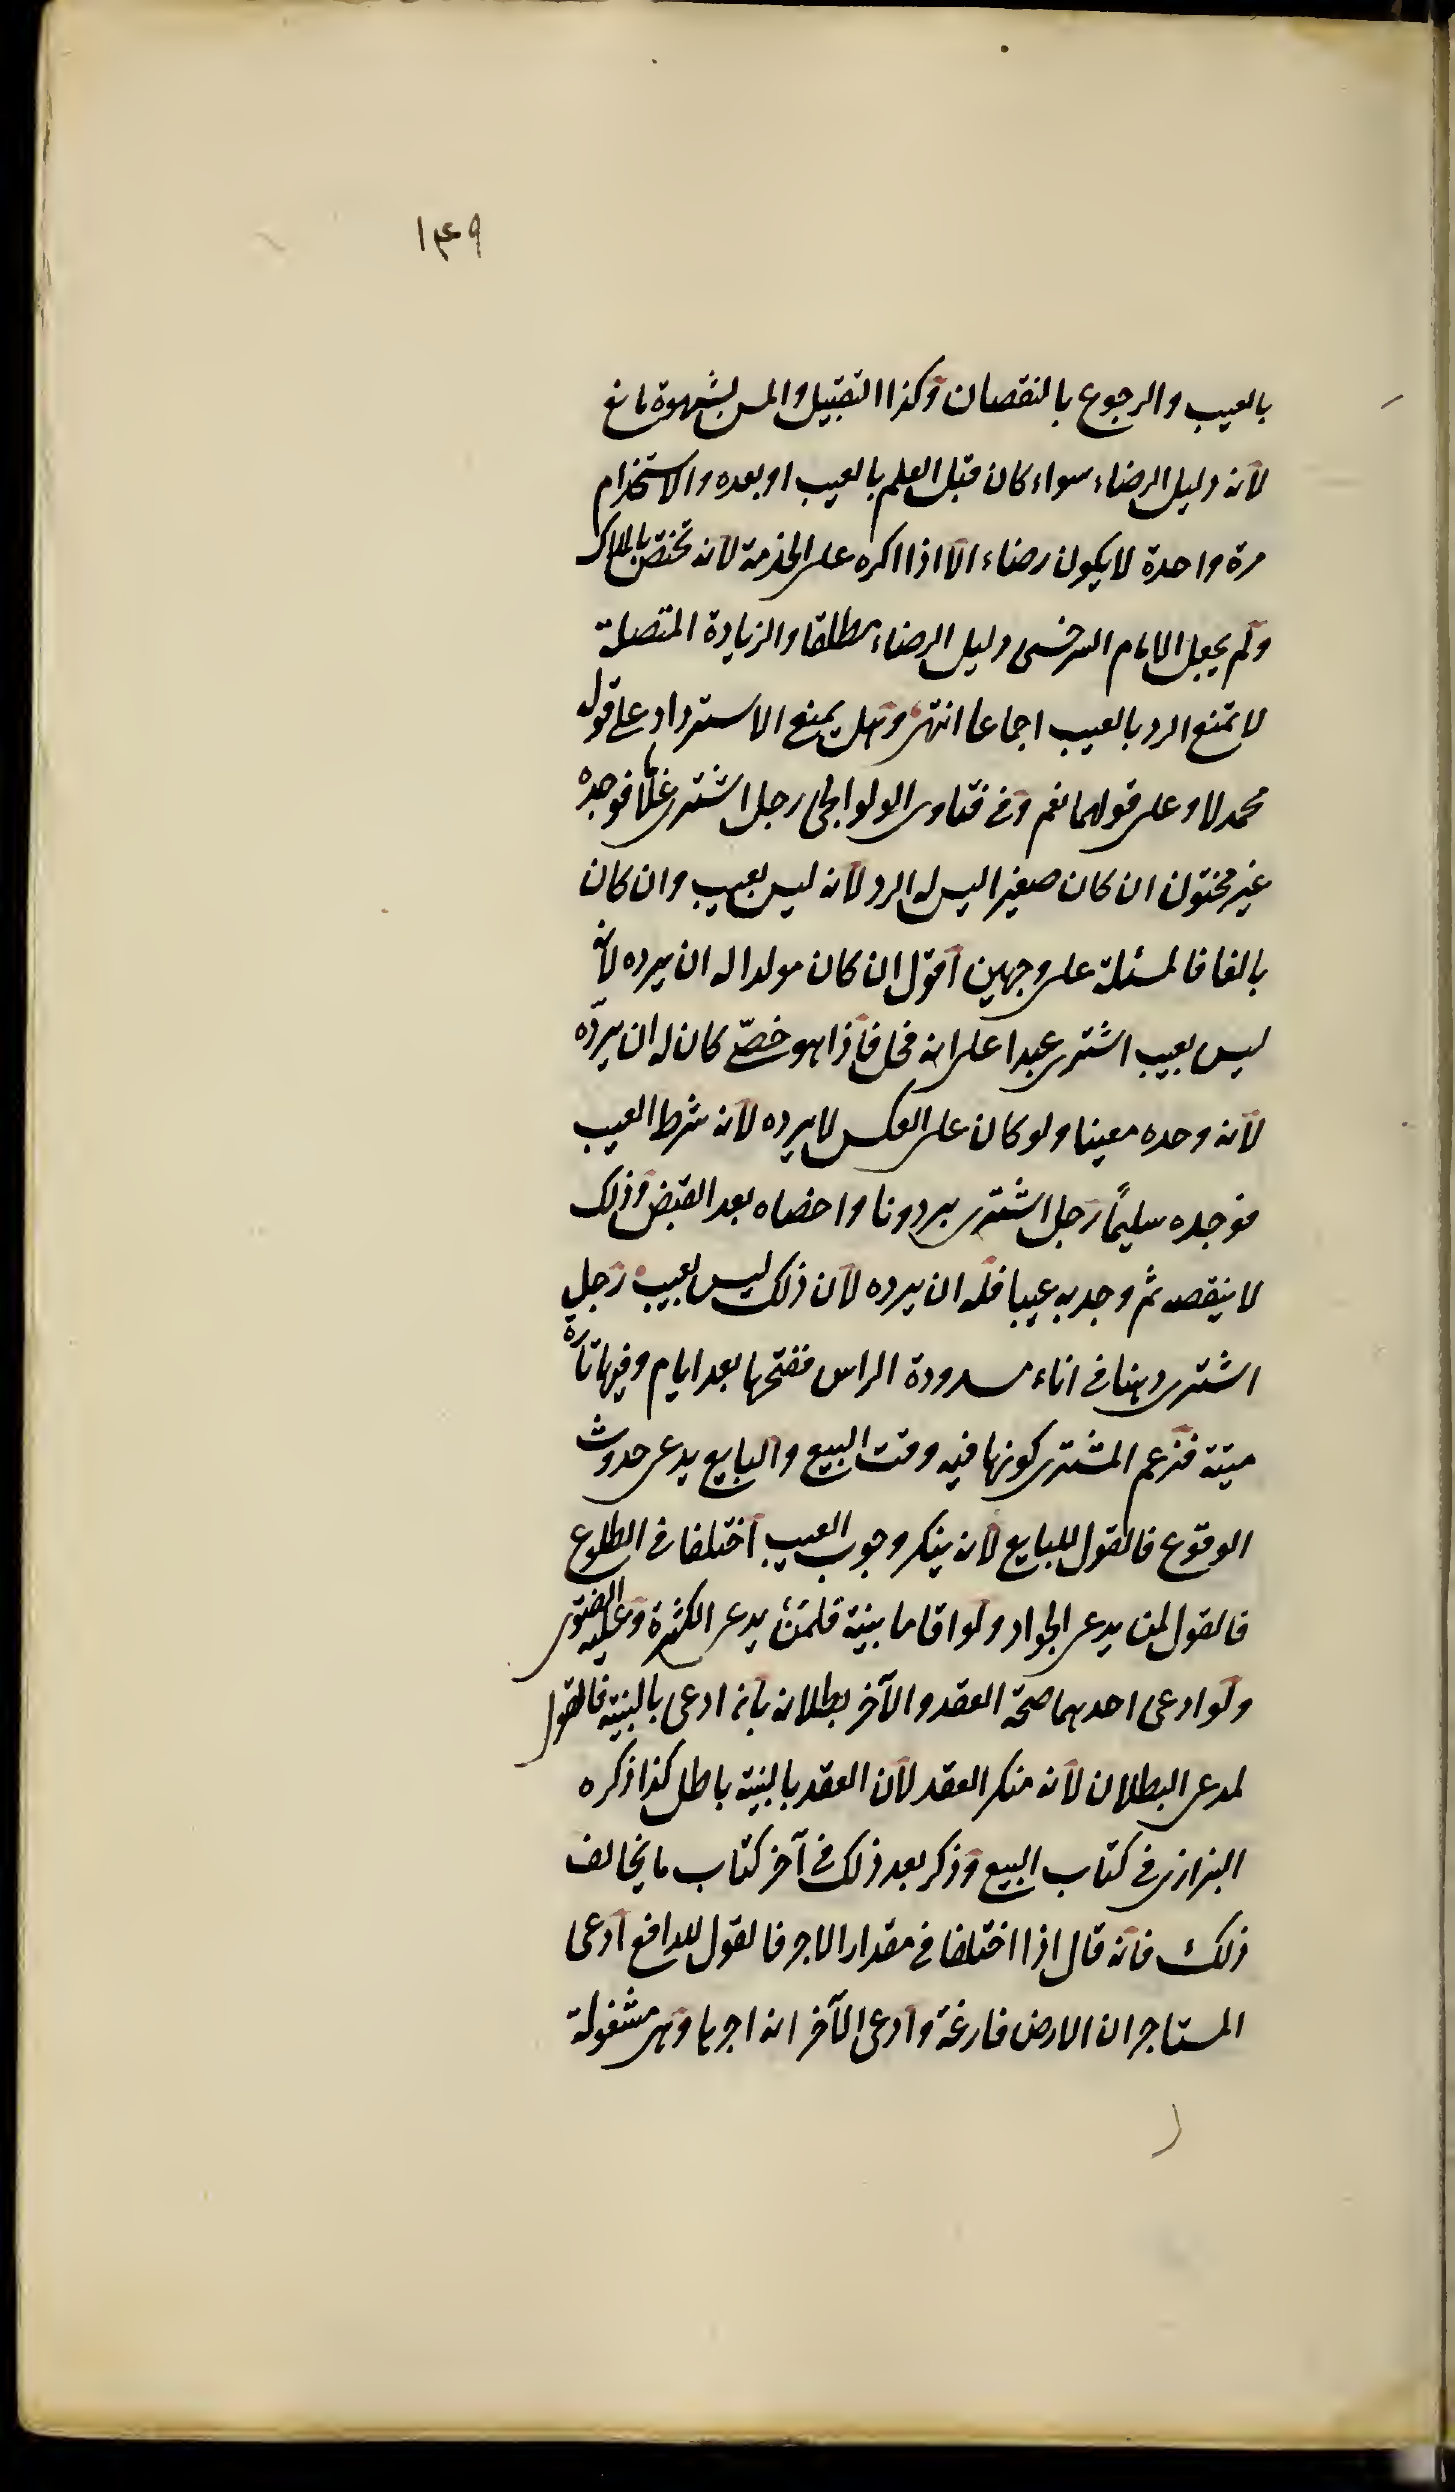 ١٤٩
بالعيب والرجوع بالنقصان وكذا التقبيل والمس بشهوة مانع
لانه دليل الرضاء سواء كان قبل العلم بالعيب او بعده والاستخدام
مرة واحدة لا يكون رضاء الا اذا اكره على الخدمة لانه تختص بالملاك
ولم يجعل الامام السرخسى دليل الرضاء مطلقا والزيادة المتصلة
لا تمنع الرد بالعيب اجماعا انتهى وهل يمنع الاسترداد على قول
محمد لا وعلى قولهما نعم وفى فتاوى الولوالجى رجل اشترى غلاما فوجده
غير مختون ان كان صغيرا ليس له الرد لانه ليس بعيب وان كان
بالغا فالمسئلة على وجهين اقول ان كان مولدا له ان يرده لانه
ليس بعيب اشترى عبدا على انه فحل فاذا هو خصىّ كان له ان يردّه
لانه وحده معينا ولو كان على العكس لا يرده لانه شرط العيب
فوجده سليمًا رجل اشترى بردونا واخصاه بعد القبض وذلك
لا ينقصه ثم وجد به عيبا فله ان يرده لان ذلك ليس بعيب رجل
اشترى دهنا فى اناء مسدودة الراس ففتحها بعد ايام وفيها فارة
ميتة فزعم المشترى كونها فيه وقت البيع والبايع يدعى حدوث
الوقوع فالقول للبايع لانه ينكر وجوب العيب اختلفا فى الطلوع
فالقول لمن يدعى الجواد ولو اقاما بينة فلمن يدعى الكثرة وعليه الفتوى
ولو ادعى احدهما صحة العقد والآخر بطلانه بانه ادعى بالبينة فالقول
لمدعى البطلان لانه منكر العقد لان العقد بالبينة باطل كذا ذكره
البزازى فى كتاب البيع وذكر بعد ذلك فى آخر كتاب ما يخالف
ذلك فانه قال اذا اختلفا فى مقدار الاجر فالقول للدافع ادعى
المستاجر ان الارض فارغة وادعى الآخر انه اجرها وهى مشغولة